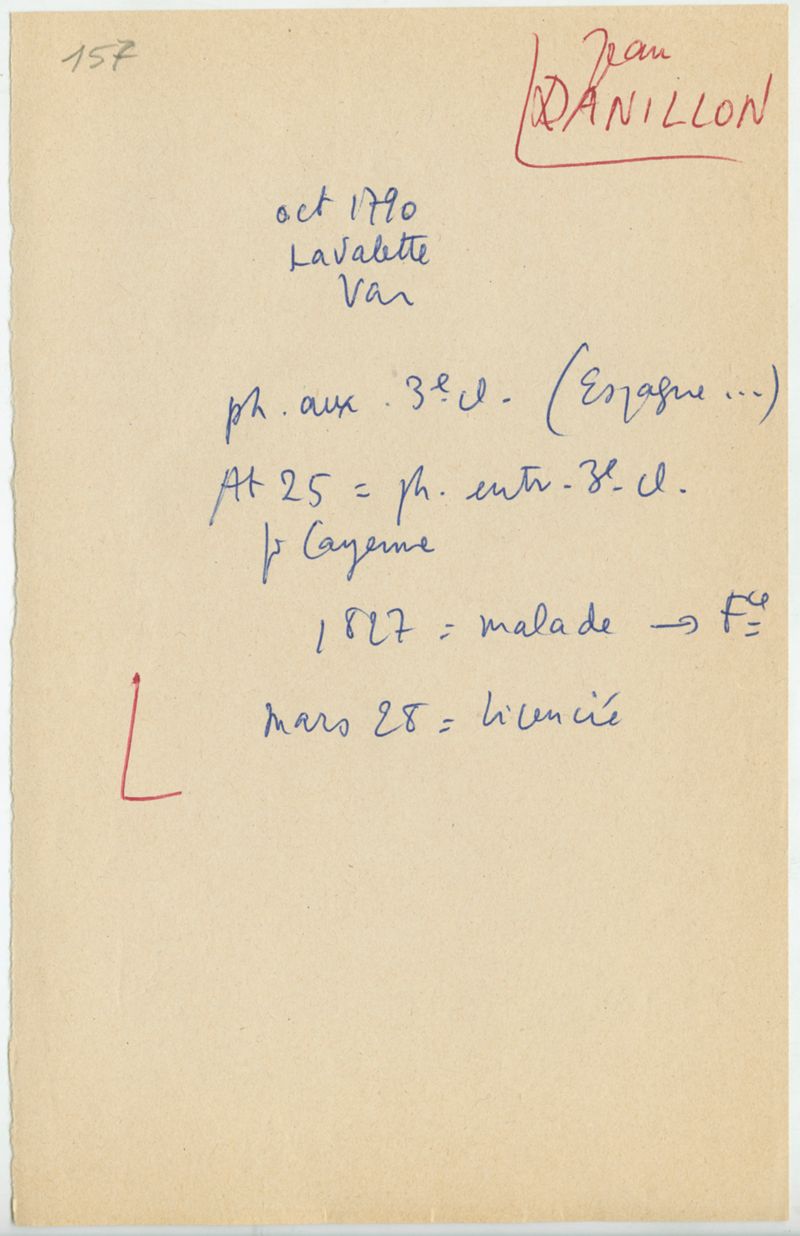 157
Jean
DANILLON
oct 1790
LaValette
Var
ph. aux. 3e cl. (Espagne ...)
At 25 = ph. entr. 3e cl.
pr Cayenne
1827 = malade → Fce
Mars 28 = licencié